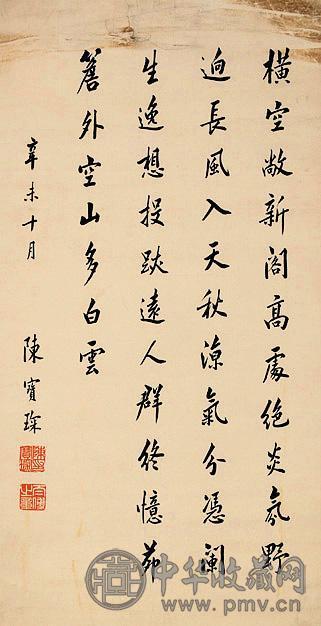 橫空敞新阁高處絶炎氛野
迥長風入天秋涼氣分憑闌
生逸想投跡遠人群終憶茆
簷外空山多白雲
辛未十月
陳寶琛
中华收藏网
www.pmv.cn